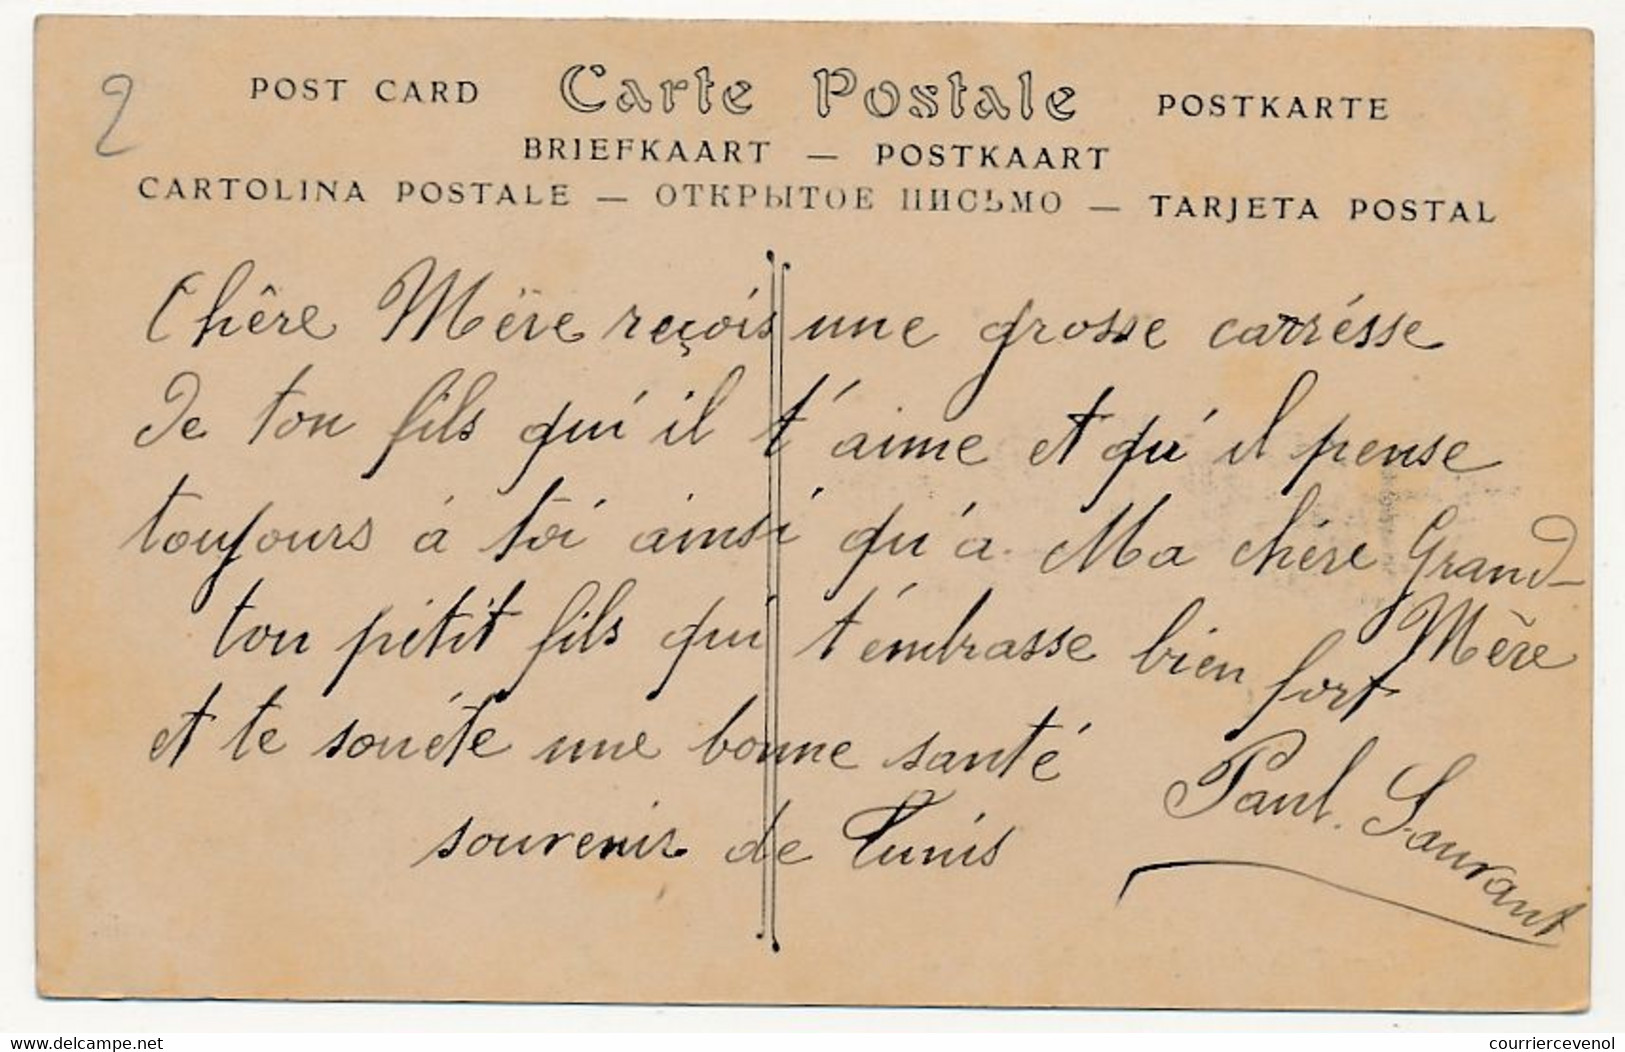 2
POST CARD Carte Postale POSTKARTE
BRIEFKAART — POSTKAART
CARTOLINA POSTALE — ОТКРЫТОЕ ПИСЬМО — TARJETA POSTAL
Chêre Mëre reçois une grosse carrésse
De ton fils qu'il t'aime et qu'il pense
toujours à toi ainsi qu'a Ma chère Grand-
Mère
ton pétit fils qui t'émbrasse bien fort
et te souéte une bonne santé
souvenir de Tunis
Paul. Sauvant
delcampe.net
courriercevenol